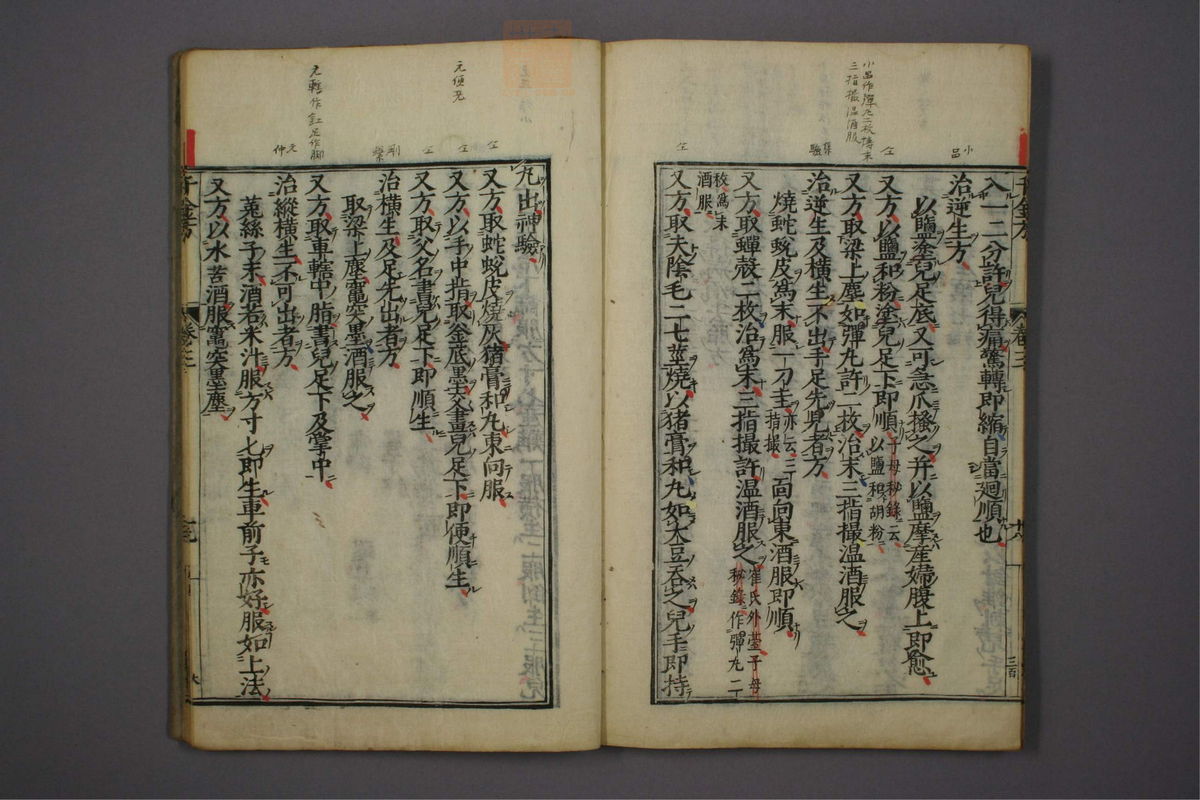 入一二分許兒得痛驚轉即縮自當廻順也
治逆生方
以鹽塗兒足底又可急爪搔之并以鹽摩産婦腹上即愈
又方以鹽和粉塗兒足下即順子母秘錄云以鹽和胡粉
又方取梁上塵如彈丸許二枚治末三指撮温酒服之
治逆生及橫生不出手足先見者方
燒蛇蛻皮爲末服一刀圭亦云三指撮面向東酒服即順
又方取蟬殼二枚治爲末三指撮許温酒服之崔氏外臺子母秘錄作彈丸二
枚爲末酒服
又方取夫陰毛二七莖燒以猪膏和丸如大豆吞之兒手即持
丸出神驗
又方取蛇蛻皮燒灰猪膏和丸東向服
又方以手中指取釜底墨交畫兒足下即便順生
又方取父名書兒足下即順生
治橫生及足先出者方
取梁上塵竈突墨酒服之
又方取車轄中脂書兒足下及掌中
治縱橫生不可出者方
菟絲子末酒若米汁服方寸匕即生車前子亦好服如上法
又方以水苦酒服竈突墨塵
千金方 卷二
千金方 卷二
小品作彈丸二枚擣末
三指撮温酒服
元便无